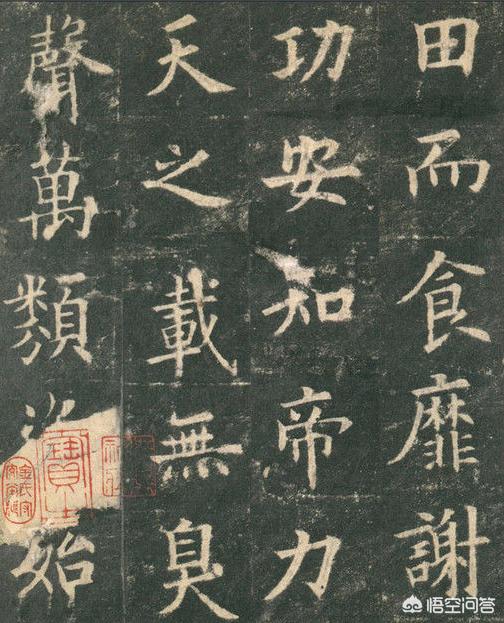 田而食靡謝
功安知帝力
天之載無臭
聲萬類始
悟空问答